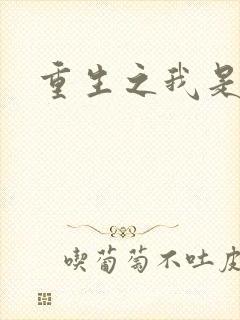 重生之我是
喫葡萄不吐皮